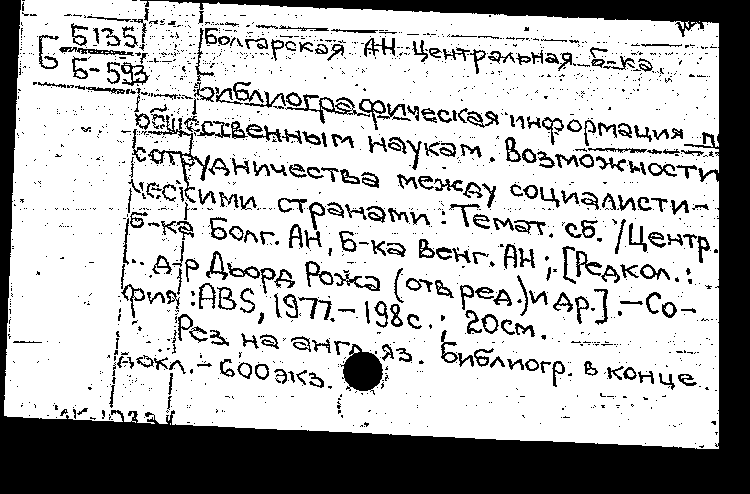 Б Б135
Б-593
Болгарская АН. Центральная б-ка.
Библиографическая информация
общественным наукам. Возможности
сотрудничества между социалисти-
ческими странами : Темат. сб. /Центр.
б-ка Болг. АН, Б-ка Венг. АН ; [Редкол.:
... д-р Дьорд Рожа (отв. ред.) и др.]. - Со-
фия : ABS, 1977. - 198с. ; 20см.
Рез. на англ. яз. Библиогр. в конце
докл. - 600 экз.